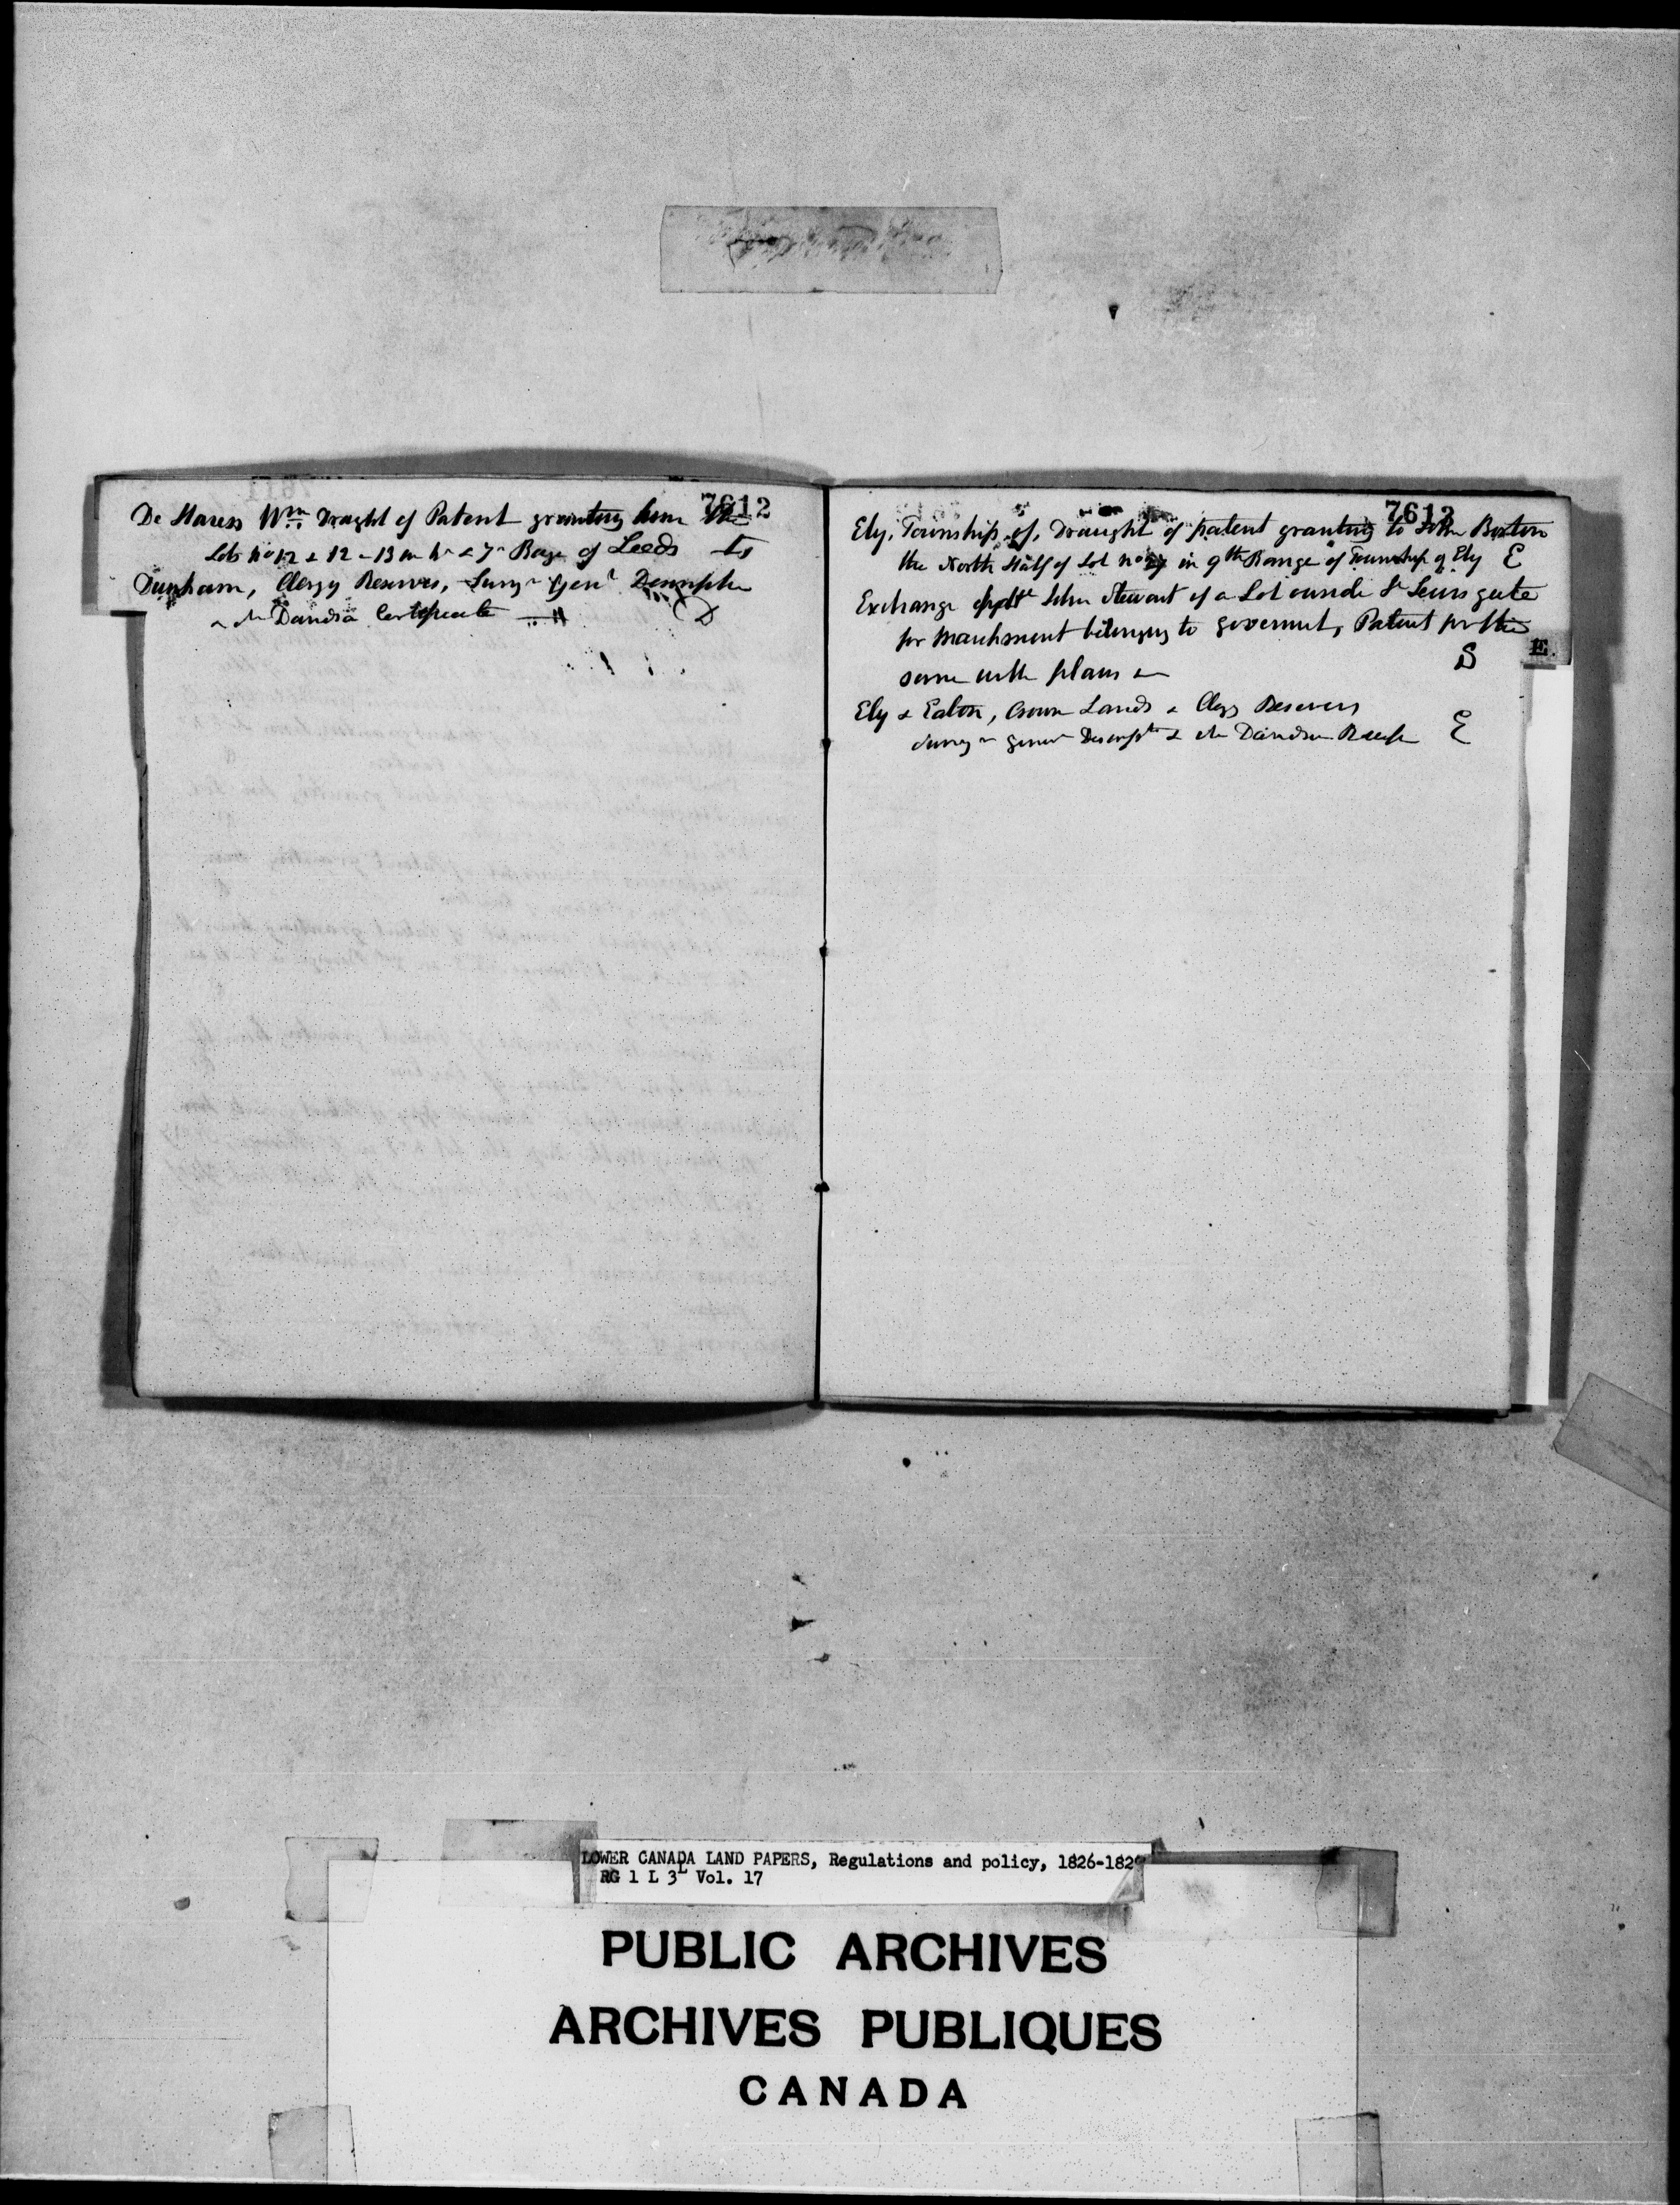 7612
De Haress Wm Draght of Patent granting him the
Lots No 12 & 12 - 13 in & 7 Range of Leeds
Dunham, Clergy Reserves, Survr Genl Descripton
Certificate D
7613
Ely, Township of, Draught of patent granting to John Boston
the North Half of Lot No in 9th Range of Township of Ely E
Exchange John Stewart of a Lot outside St Lewis gate
for belonging to governmt, Patent for the
same with plans &c S
E.
Ely & Eaton, Crown Lands & Clergy Reserves
E
LOWER CANADA LAND PAPERS, Regulations and policy, 1826-1829
RG 1 L 3L Vol. 17
PUBLIC ARCHIVES
ARCHIVES PUBLIQUES
CANADA